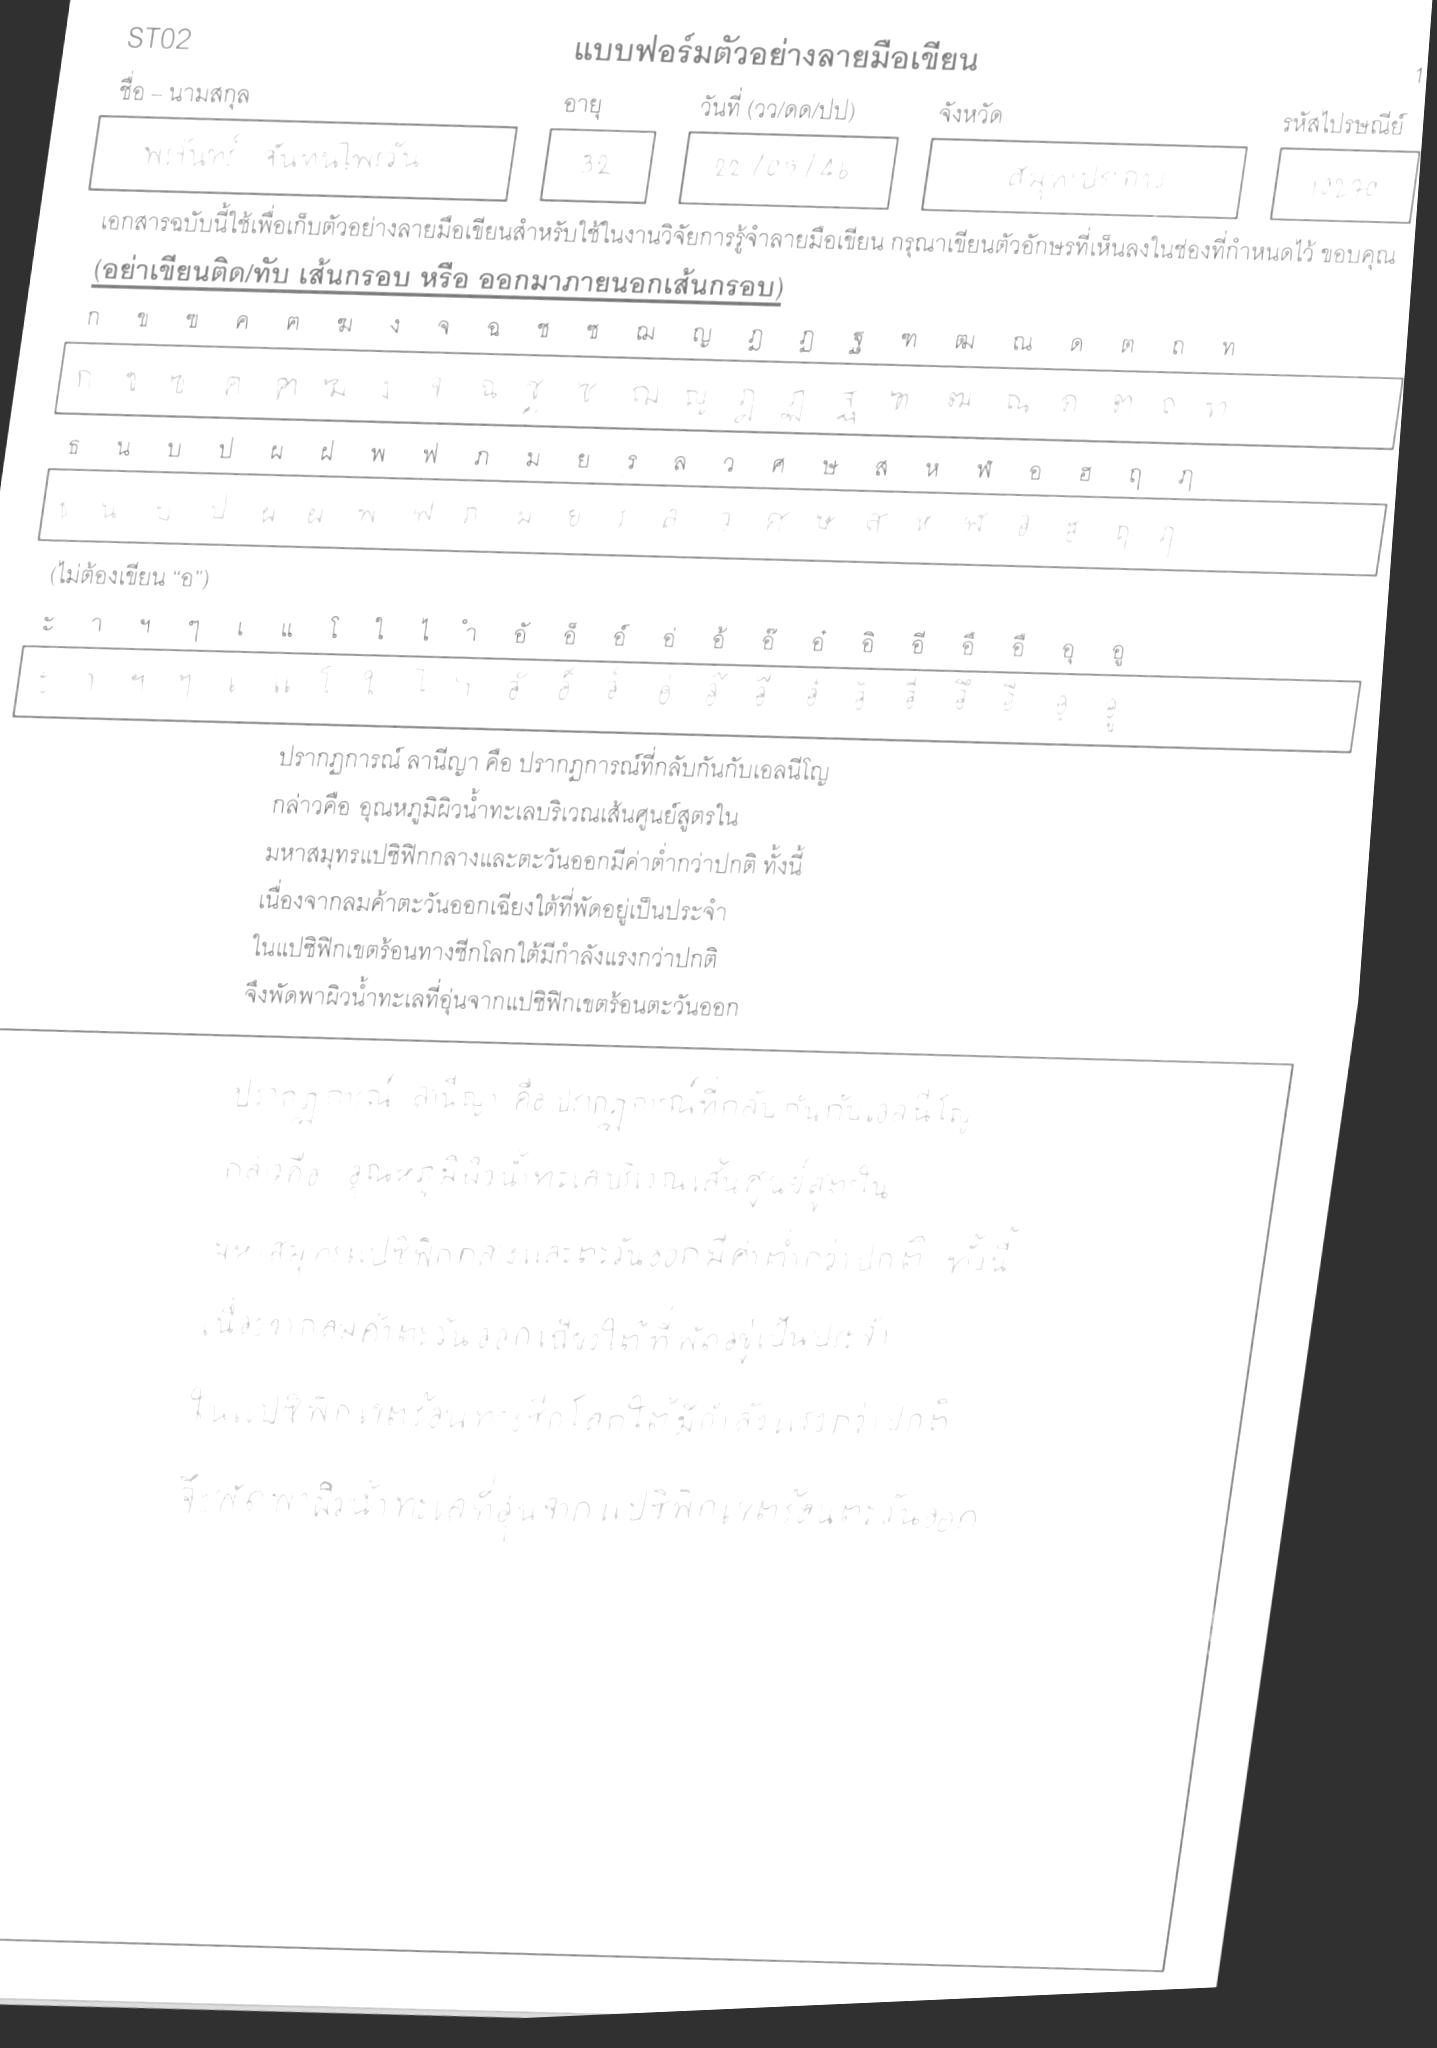 ST02
แบบฟอร์มตัวอย่างลายมือเขียน
1
ชื่อ – นามสกุล อายุ วันที่ (วว/ดด/ปป) จังหวัด รหัสไปรษณีย์
พรจันทร์ จันทนไพรวัน 32 22/09/46 สมุทรปราการ 10270
เอกสารฉบับนี้ใช้เพื่อเก็บตัวอย่างลายมือเขียนสำหรับใช้ในงานวิจัยการรู้จำลายมือเขียน กรุณาเขียนตัวอักษรที่เห็นลงในช่องที่กำหนดไว้ ขอบคุณ
(อย่าเขียนติด/ทับ เส้นกรอบ หรือ ออกมาภายนอกเส้นกรอบ)
ก ข ฃ ค ฅ ฆ ง จ ฉ ช ซ ฌ ญ ฎ ฏ ฐ ฑ ฒ ณ ด ต ถ ท
ก ข ฃ ค ฅ ฆ ง จ ฉ ช ซ ฌ ญ ฎ ฏ ฐ ฑ ฒ ณ ด ต ถ ท
ธ น บ ป ผ ฝ พ ฟ ภ ม ย ร ล ว ศ ษ ส ห ฬ อ ฮ ฤ ฦ
ธ น บ ป ผ ฝ พ ฟ ภ ม ย ร ล ว ศ ษ ส ห ฬ อ ฮ ฤ ฦ
(ไม่ต้องเขียน “อ”)
ะ า ฯ ๆ เ แ โ ใ ไ ำ อั อ็ อ์ อ่ อ้ อ๊ อ๋ อิ อี อึ อื อุ อู
ะ า ฯ ๆ เ แ โ ใ ไ ำ อั อ็ อ์ อ่ อ้ อ๊ อ๋ อิ อี อึ อื อุ อู
ปรากฏการณ์ ลานีญา คือ ปรากฏการณ์ที่กลับกันกับเอลนีโญ
กล่าวคือ อุณหภูมิผิวน้ำทะเลบริเวณเส้นศูนย์สูตรใน
มหาสมุทรแปซิฟิกกลางและตะวันออกมีค่าต่ำกว่าปกติ ทั้งนี้
เนื่องจากลมค้าตะวันออกเฉียงใต้ที่พัดอยู่เป็นประจำ
ในแปซิฟิกเขตร้อนทางซีกโลกใต้มีกำลังแรงกว่าปกติ
จึงพัดพาผิวน้ำทะเลที่อุ่นจากแปซิฟิกเขตร้อนตะวันออก
ปรากฏการณ์ ลานีญา คือ ปรากฏการณ์ที่กลับกันกับเอลนีโญ
กล่าวคือ อุณหภูมิผิวน้ำทะเลบริเวณเส้นศูนย์สูตรใน
มหาสมุทรแปซิฟิกกลางและตะวันออกมีค่าต่ำกว่าปกติ ทั้งนี้
เนื่องจากลมค้าตะวันออกเฉียงใต้ที่พัดอยู่เป็นประจำ
ในแปซิฟิกเขตร้อนทางซีกโลกใต้มีกำลังแรงกว่าปกติ
จึงพัดพาผิวน้ำทะเลที่อุ่นจากแปซิฟิกเขตร้อนตะวันออก